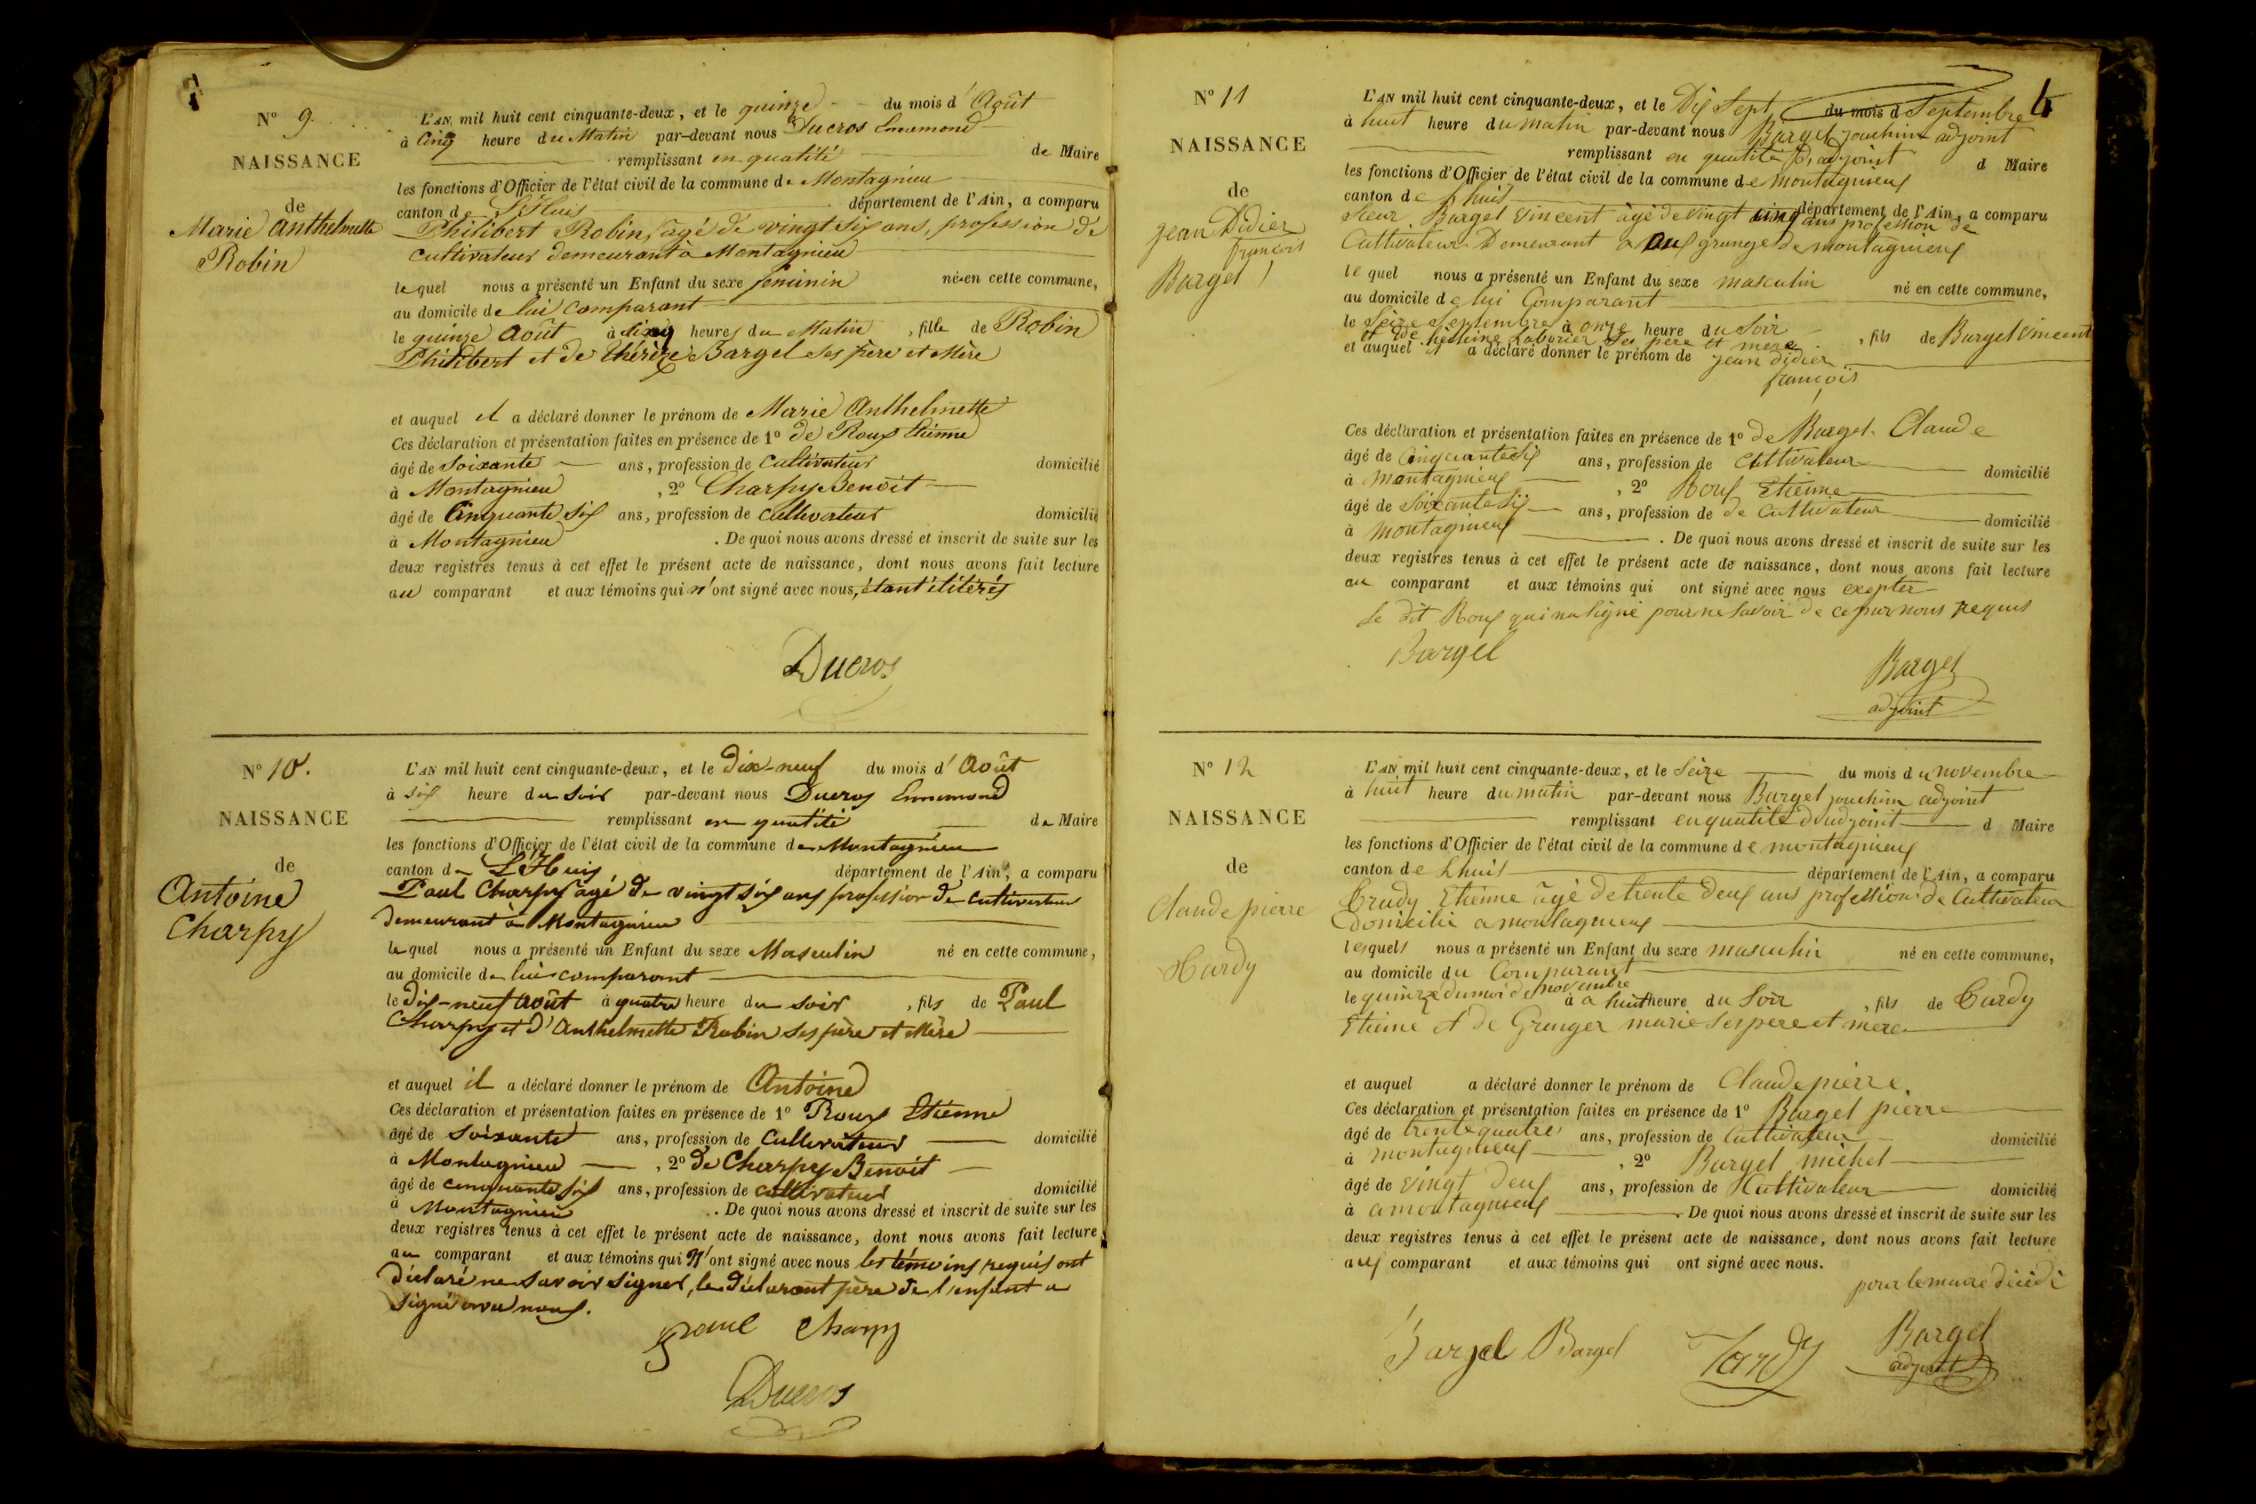 N° 9.
NAISSANCE
de
Marie Anthelmette
Robin
L'AN mil huit cent cinquante-deux, et le quinze du mois d'Août
à Cinq heure du Matin par-devant nous Ducros Ennemond
remplissant en qualité de Maire
les fonctions d'Officier de l'état civil de la commune de Montagnieu
canton de L'Huis département de l'Ain, a comparu
Philibert Robin, agé de vingt six ans, profession de
cultivateur demeurant à Montagnieu
lequel nous a présenté un Enfant du sexe feminin né en cette commune,
au domicile de lui comparant
le quinze Août à heures du Matin, fille de Robin
Philibert et de Thérèze Bargel ses père et Mère
et auquel il a déclaré donner le prénom de Marie Anthelmette
Ces déclaration et présentation faites en présence de 1° de Roux Etienne
âgé de soixante ans, profession de Cultivateur domicilié
à Montagnieu, 2° Charpy Benoit
âgé de Cinquante six ans, profession de cultivateur domicilié
à Montagnieu. De quoi nous avons dressé et inscrit de suite sur les
deux registres tenus à cet effet le présent acte de naissance, dont nous avons fait lecture
au comparant et aux témoins qui n'ont signé avec nous, étant élitérés
Ducros
N° 10.
NAISSANCE
de
Antoine
Charpy
L'AN mil huit cent cinquante-deux, et le Dix-neuf du mois d'Août
à six heure du soir par-devant nous Ducros Ennemond
remplissant en qualité de Maire
les fonctions d'Officier de l'état civil de la commune de Montagnieu
canton de L'Huis département de l'Ain, a comparu
Paul Charpy agé de vingt six ans profession de cultivateur
demeurant à Montagnieu
lequel nous a présenté un Enfant du sexe Masculin né en cette commune,
au domicile de lui comparant
le dix-neuf Août à quatre heure du soir, fils de Paul
Charpy et d'Anthelmette Robin ses père et Mère
et auquel il a déclaré donner le prénom de Antoine
Ces déclaration et présentation faites en présence de 1° Roux Etienne
âgé de soixante ans, profession de Cultivateur domicilié
à Montagnieu, 2° de Charpy Benoit
âgé de cinquante six ans, profession de cultivateur domicilié
à Montagnieu. De quoi nous avons dressé et inscrit de suite sur les
deux registres tenus à cet effet le présent acte de naissance, dont nous avons fait lecture
au comparant et aux témoins qui N'ont signé avec nous les témoins requis ont
déclaré ne savoir signer, le déclarant père de l'enfant a
signé avec nous.
paul Charpy
Ducros
4
N° 11
NAISSANCE
de
jean Didier
françois
Bargel
L'AN mil huit cent cinquante-deux, et le Dix Sept du mois d Septembre
à huit heure du matin par-devant nous Bargel jouchim adjoint
remplissant en qualité D'adjoint d Maire
les fonctions d'Officier de l'état civil de la commune de montagnieux
canton de Lhuis département de l'Ain, a comparu
Sieur Bargel Vincent âgé de vingt cinq ans profession de
Cultivateur Demeurant a aux grange de montagnieux
lequel nous a présenté un Enfant du sexe masculin né en cette commune,
au domicile de lui Comparant
le Seize Septembre à onze heure du Soir, fils de Bargel Vincent
et de Laborier Ses père et mere
et auquel il a déclaré donner le prénom de jean didier
françois
Ces déclaration et présentation faites en présence de 1° de Bargel Claude
âgé de Cinquante six ans, profession de Cultivateur domicilié
à montagnieux, 2° Roux Etienne
âgé de Soixante Six ans, profession de de Cultivateur domicilié
à montagnieux. De quoi nous avons dressé et inscrit de suite sur les
deux registres tenus à cet effet le présent acte de naissance, dont nous avons fait lecture
au comparant et aux témoins qui ont signé avec nous exepter
le dit Roux qui na signé pour ne savoir de ce par nous requis
Bargel
Bargel
adjoint
N° 12
NAISSANCE
de
Claude pierre
Hardy
L'AN mil huit cent cinquante-deux, et le Seize du mois du novembre
à huit heure du matin par-devant nous Bargel jouchim adjoint
remplissant en qualité d'adjoint d Maire
les fonctions d'Officier de l'état civil de la commune de montagnieux
canton de Lhuis département de l'Ain, a comparu
Etienne âgé de trente deux ans profession de Cultivateur
Domicilié a montagnieux
lesquels nous a présenté un Enfant du sexe masculin né en cette commune,
au domicile du Comparant
le quinze du moi de novembre à a huit heure du Soir, fils de
Etienne et de Granger marie Ses pere et mere
et auquel a déclaré donner le prénom de Claude pierre.
Ces déclaration et présentation faites en présence de 1° Bargel pierre
âgé de trente quatre ans, profession de Cultivateur domicilié
à montagnieux, 2° Bargel michel
âgé de vingt deux ans, profession de Cultivateur domicilié
à a montagnieux. De quoi nous avons dressé et inscrit de suite sur les
deux registres tenus à cet effet le présent acte de naissance, dont nous avons fait lecture
aux comparant et aux témoins qui ont signé avec nous.
pour le maire décédé
Bargel Bargel Tardy Bargel
adjoint